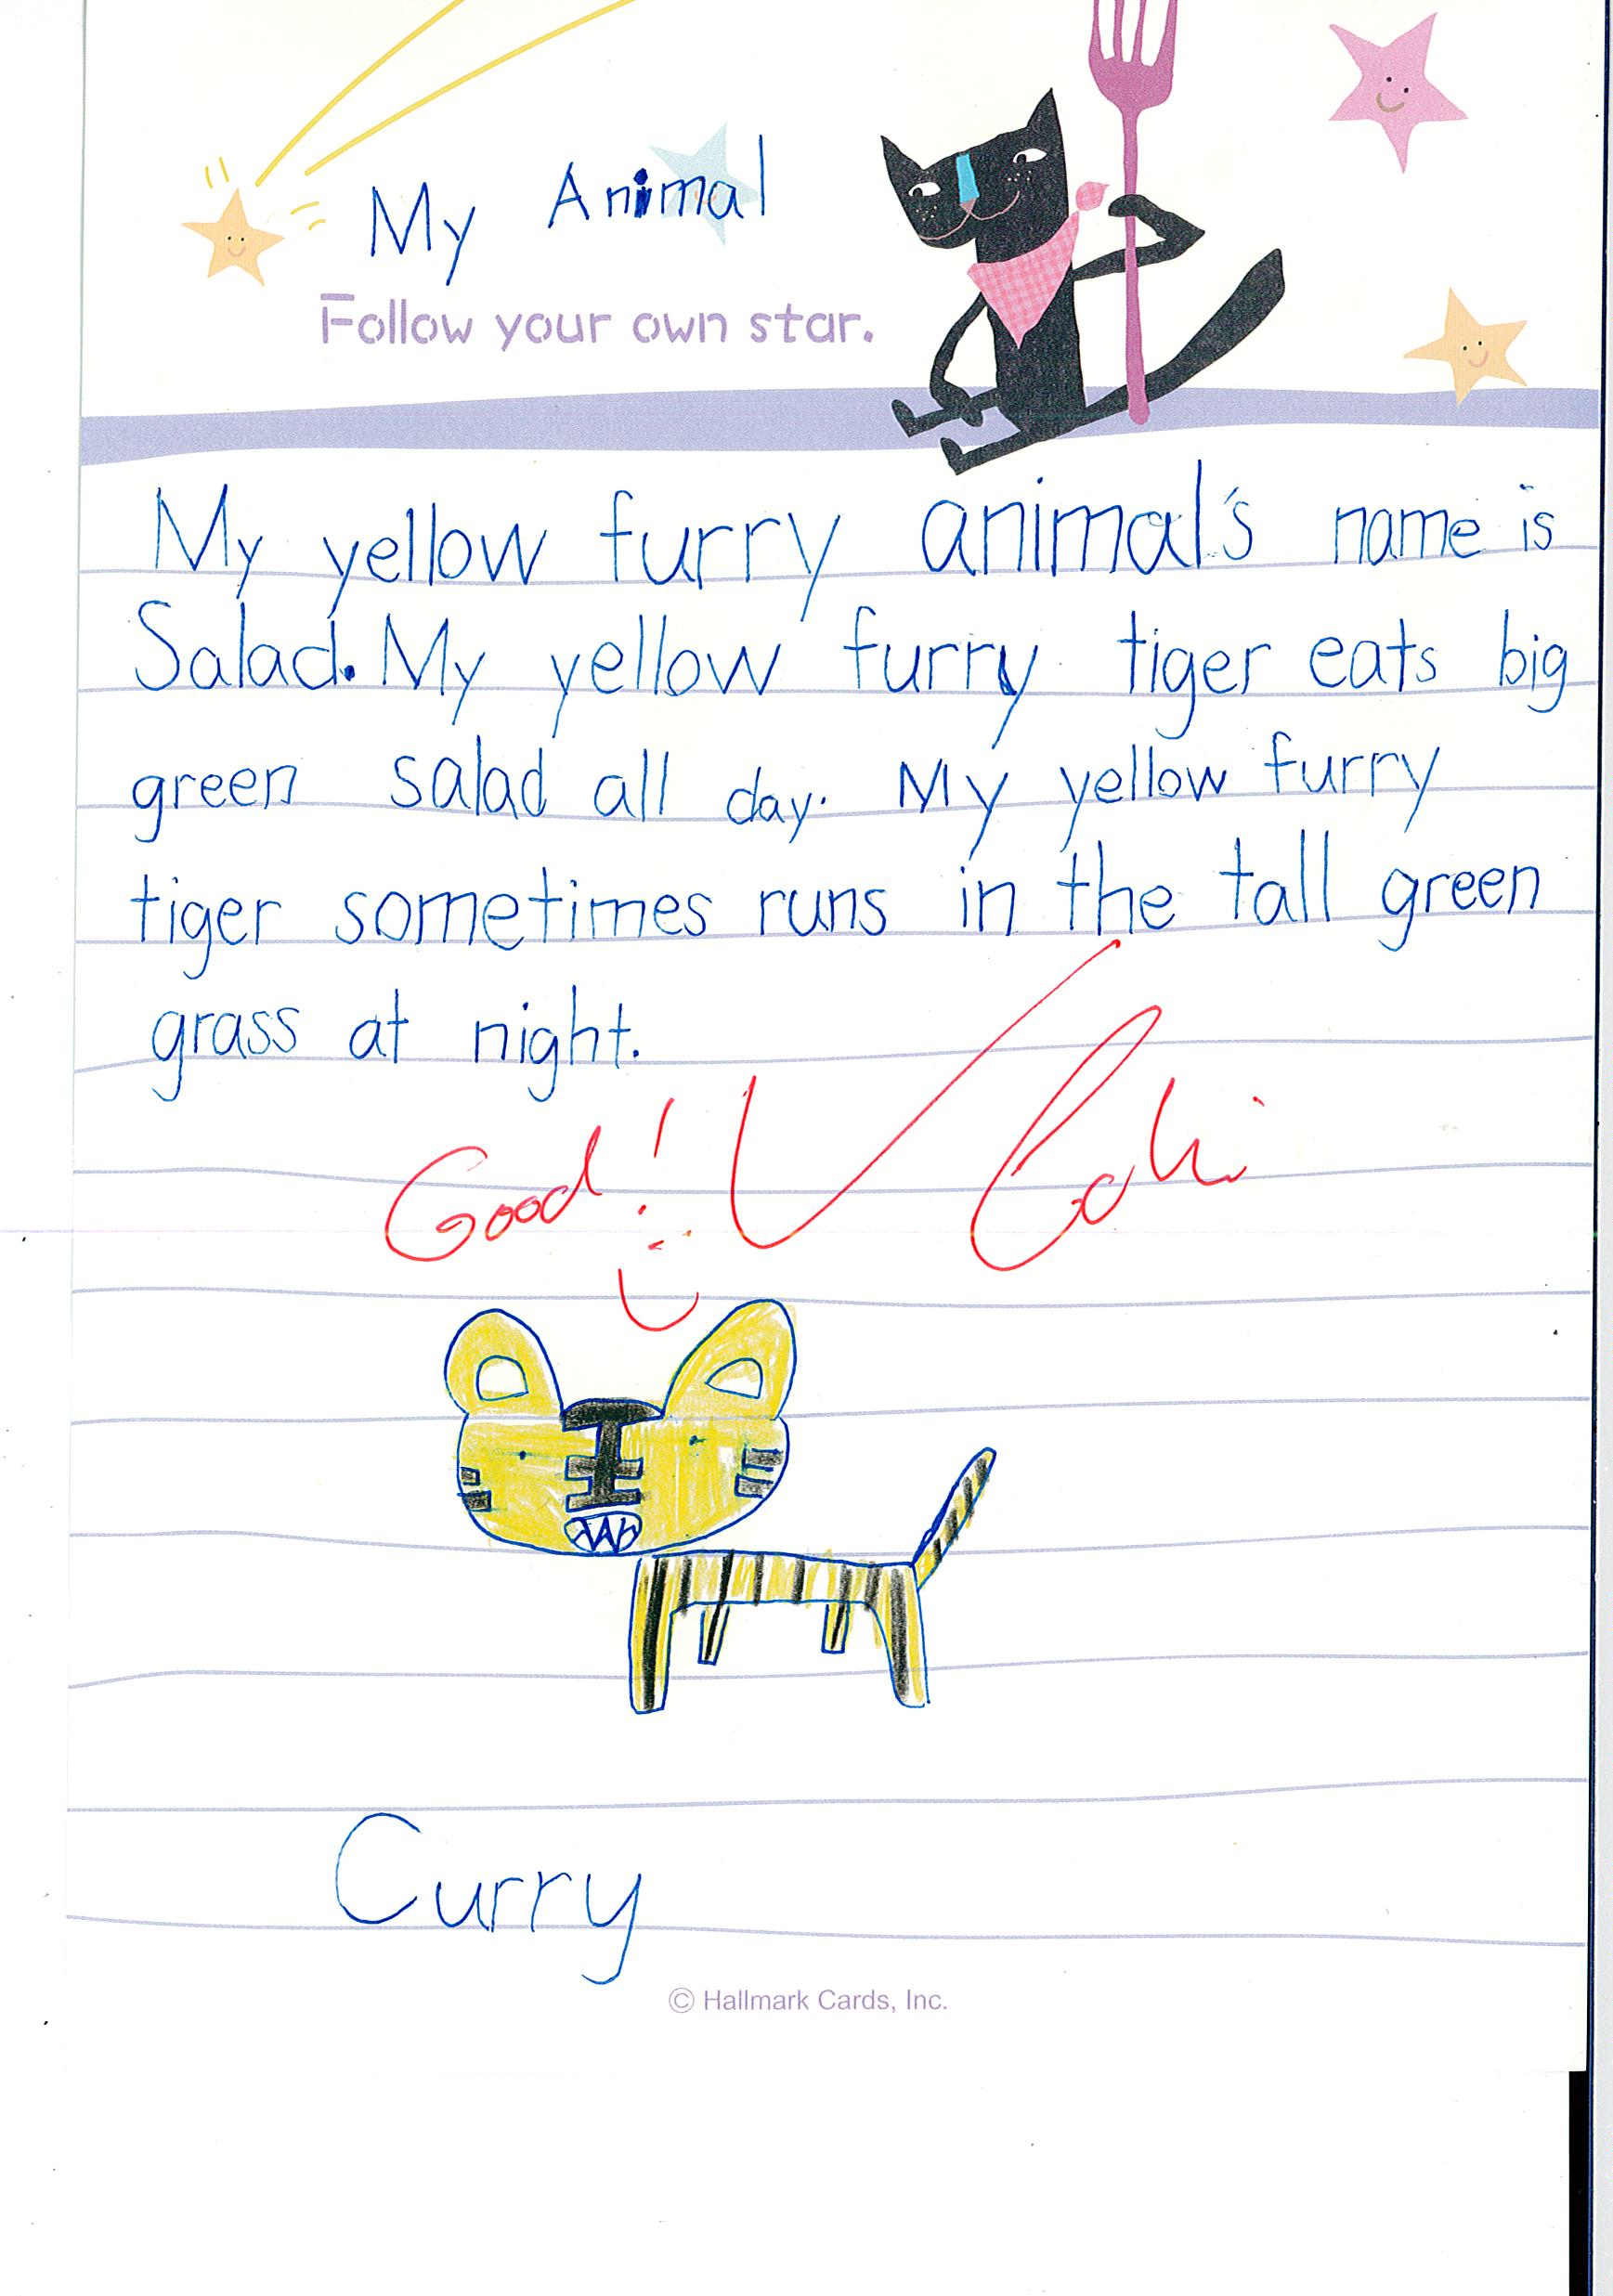 My Animal
Follow your own star.
My yellow furry animal's name is
Salad. My yellow furry tiger eats big
green salad all day. My yellow furry
tiger sometimes runs in the tall green
grass at night.
Good!
Curry
© Hallmark Cards, Inc.